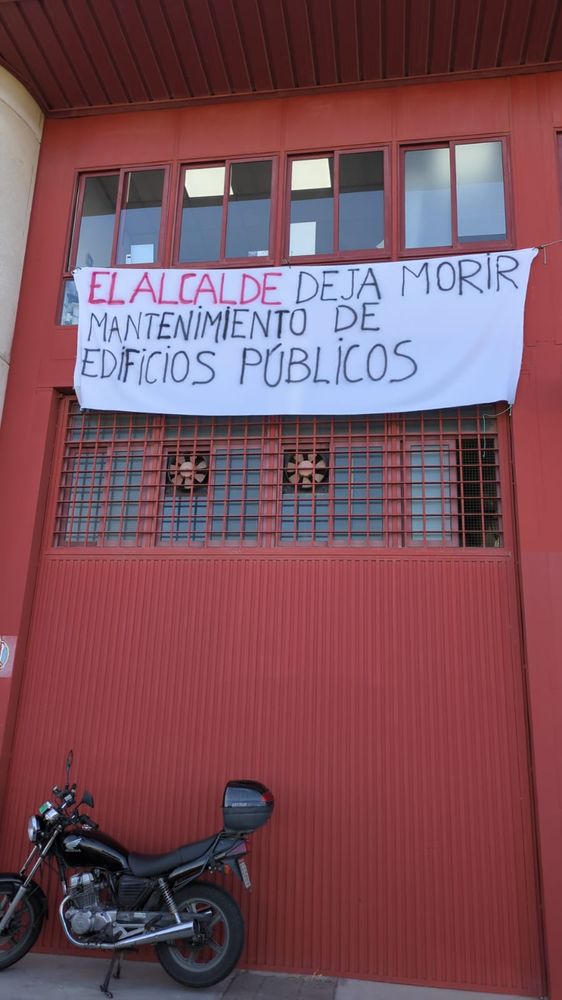 EL ALCALDE DEJA MORIR
MANTENIMIENTO DE
EDIFICIOS PÚBLICOS